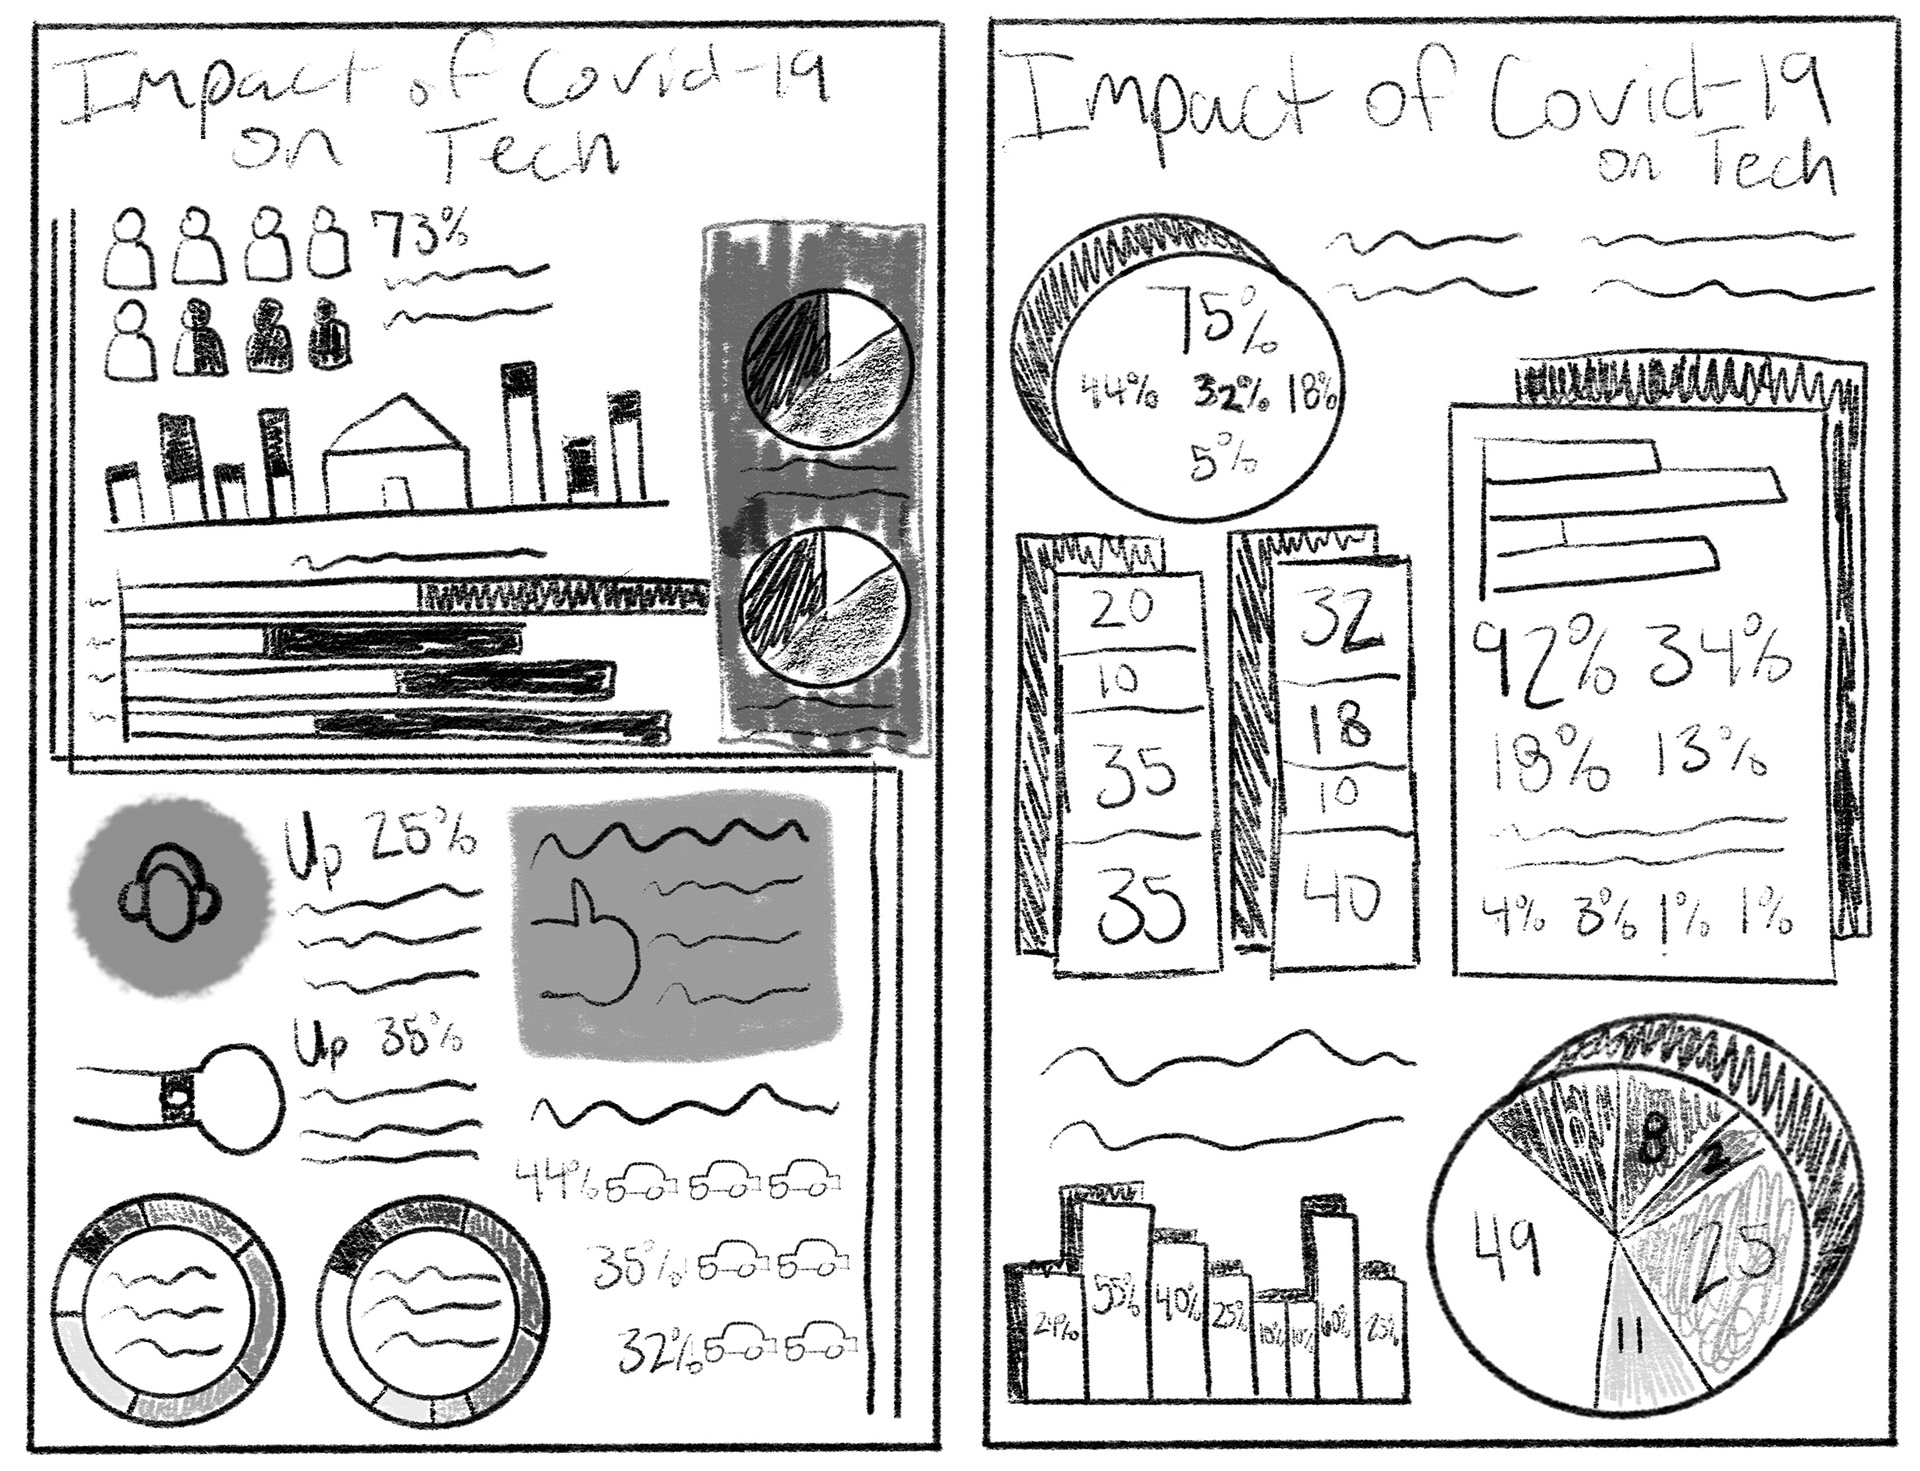 Impact of Covid-19
on Tech
73%
Up 25%
Up 35%
44%
35%
32%
Impact of Covid-19
on Tech
75%
44% 32% 18%
5%
20
10
35
35
32
18
10
40
92% 34%
18% 13%
4% 3% 1% 1%
55%
40%
25%
10%
10%
60%
25%
6
8
2
25
11
49